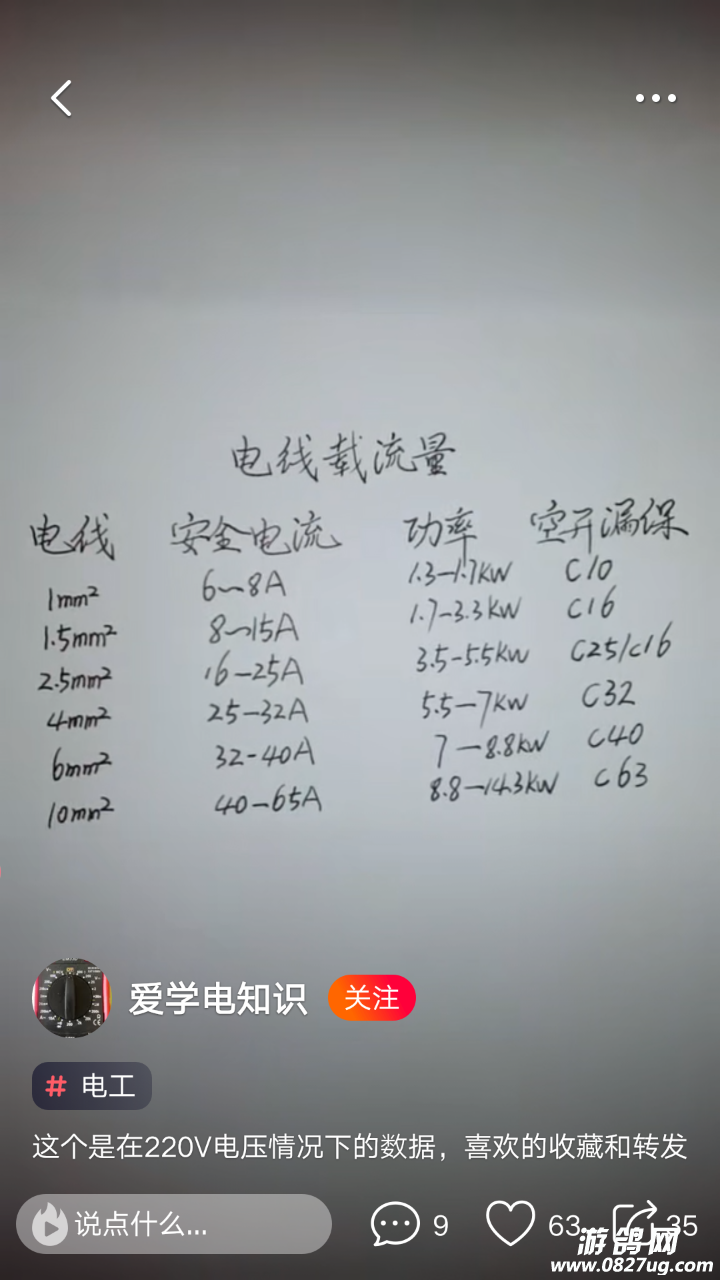 电线载流量
电线 安全电流 功率 空开漏保
1mm² 6—8A 1.3—1.7KW C10
1.5mm² 8—15A 1.7-3.3KW C16
2.5mm² 16—25A 3.5-5.5KW C25/C16
4mm² 25—32A 5.5—7KW C32
6mm² 32-40A 7—8.8KW C40
10mm² 40—65A 8.8—14.3KW C63
爱学电知识 关注
# 电工
这个是在220V电压情况下的数据，喜欢的收藏和转发
说点什么... 9 63 35
游鸽网
www.0827ug.com